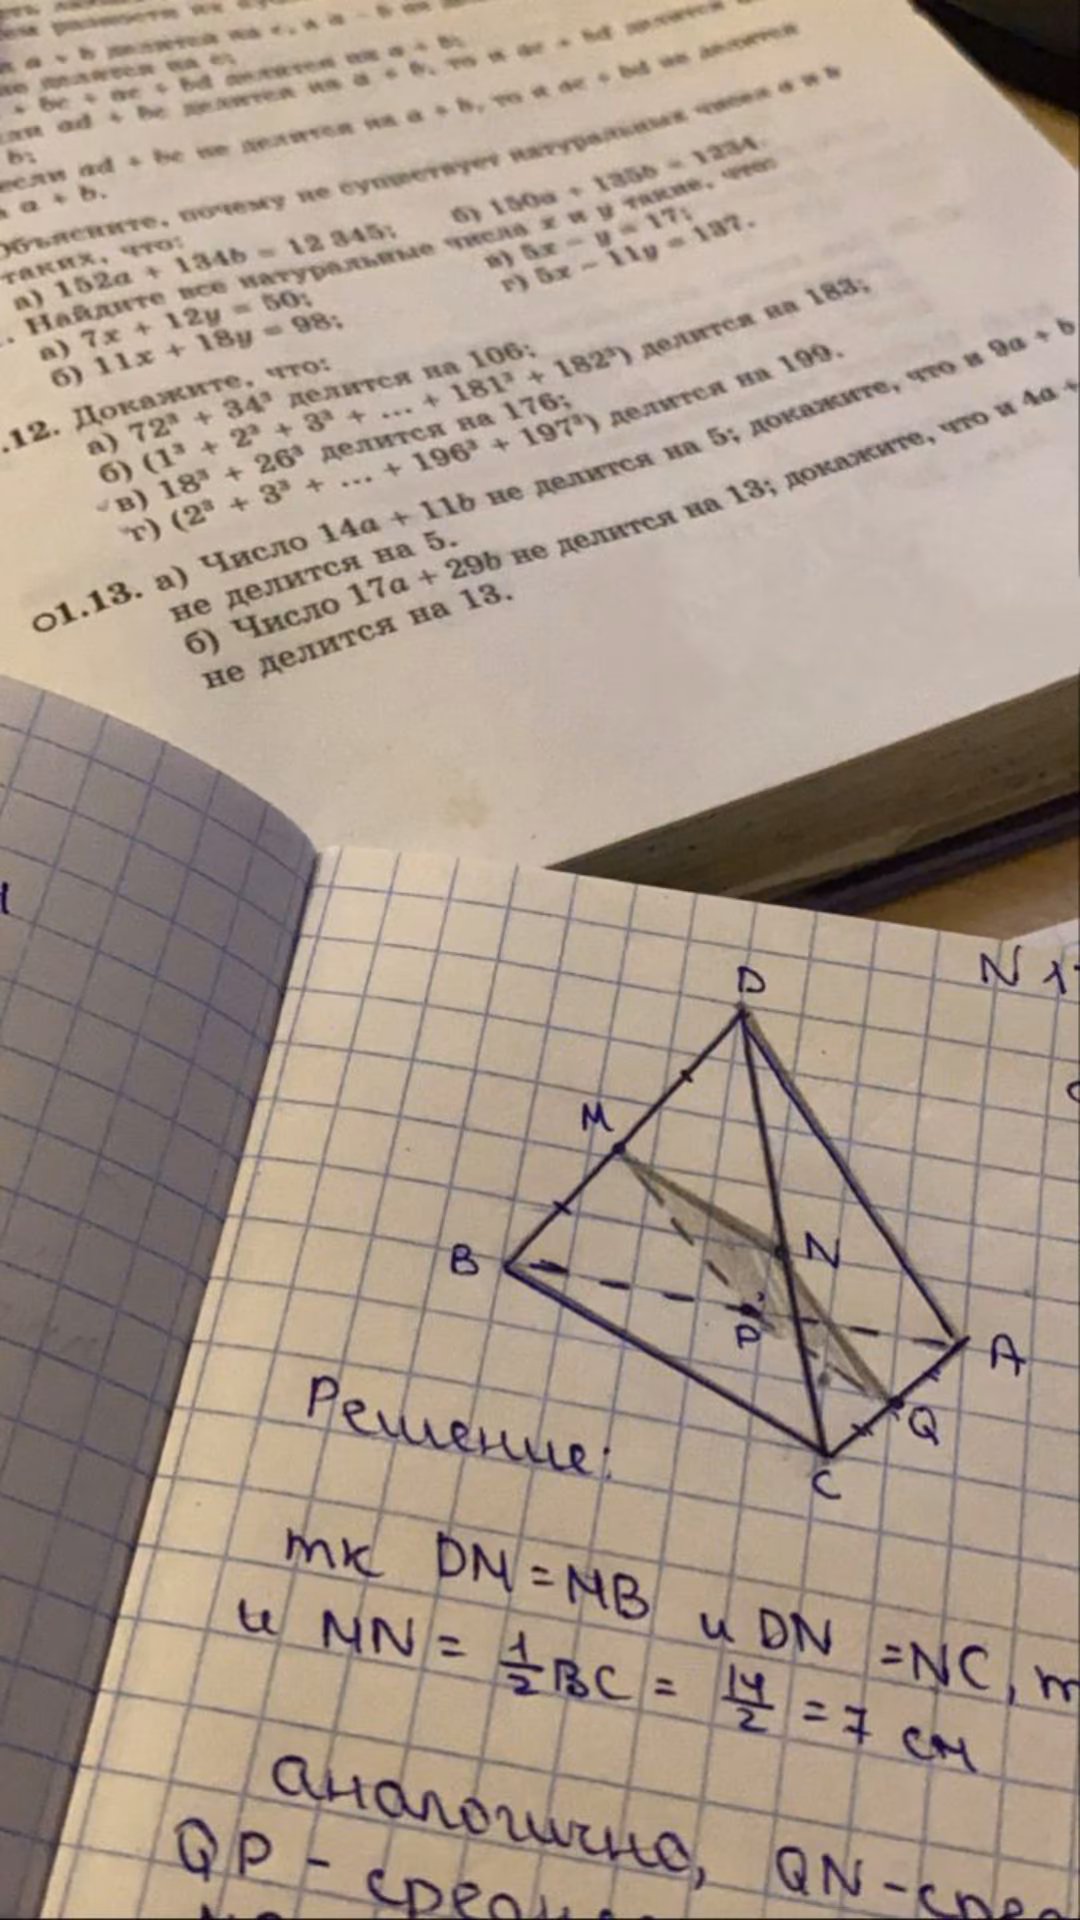 а + b делится на c, а a − b не
не делится на c;
+ bc + ac + bd делится на a + b;
если ad + bc делится на a + b, то и ac + bd делится
b;
если ad + bc не делится на a + b, то и ac + bd не делится
а a + b.
Объясните, почему не существует натуральных чисел a и b
таких, что:
а) 152a + 134b = 12 345; б) 150a + 135b = 1234.
. Найдите все натуральные числа x и y такие, что:
а) 7x + 12y = 50; в) 5x − y = 17;
б) 11x + 18y = 98; г) 5x − 11y = 137.
.12. Докажите, что:
а) 72³ + 34³ делится на 106;
б) (1³ + 2³ + 3³ + ... + 181³ + 182³) делится на 183;
в) 18³ + 26³ делится на 176;
г) (2³ + 3³ + ... + 196³ + 197³) делится на 199.
○1.13. а) Число 14a + 11b не делится на 5; докажите, что и 9a + b
не делится на 5.
б) Число 17a + 29b не делится на 13; докажите, что и 4a +
не делится на 13.
N 1
D
M
B
N
P
A
Q
C
Решение:
тк DM = MB и DN = NC, т
и MN = 1/2 BC = 14/2 = 7 см
аналогично, QN - сред
QP - средн